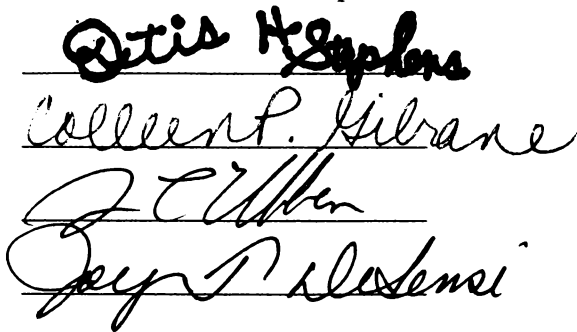 Otis H. Stephens
Colleen P. Gilrane
J C Ubben
Joy T. DeSensi